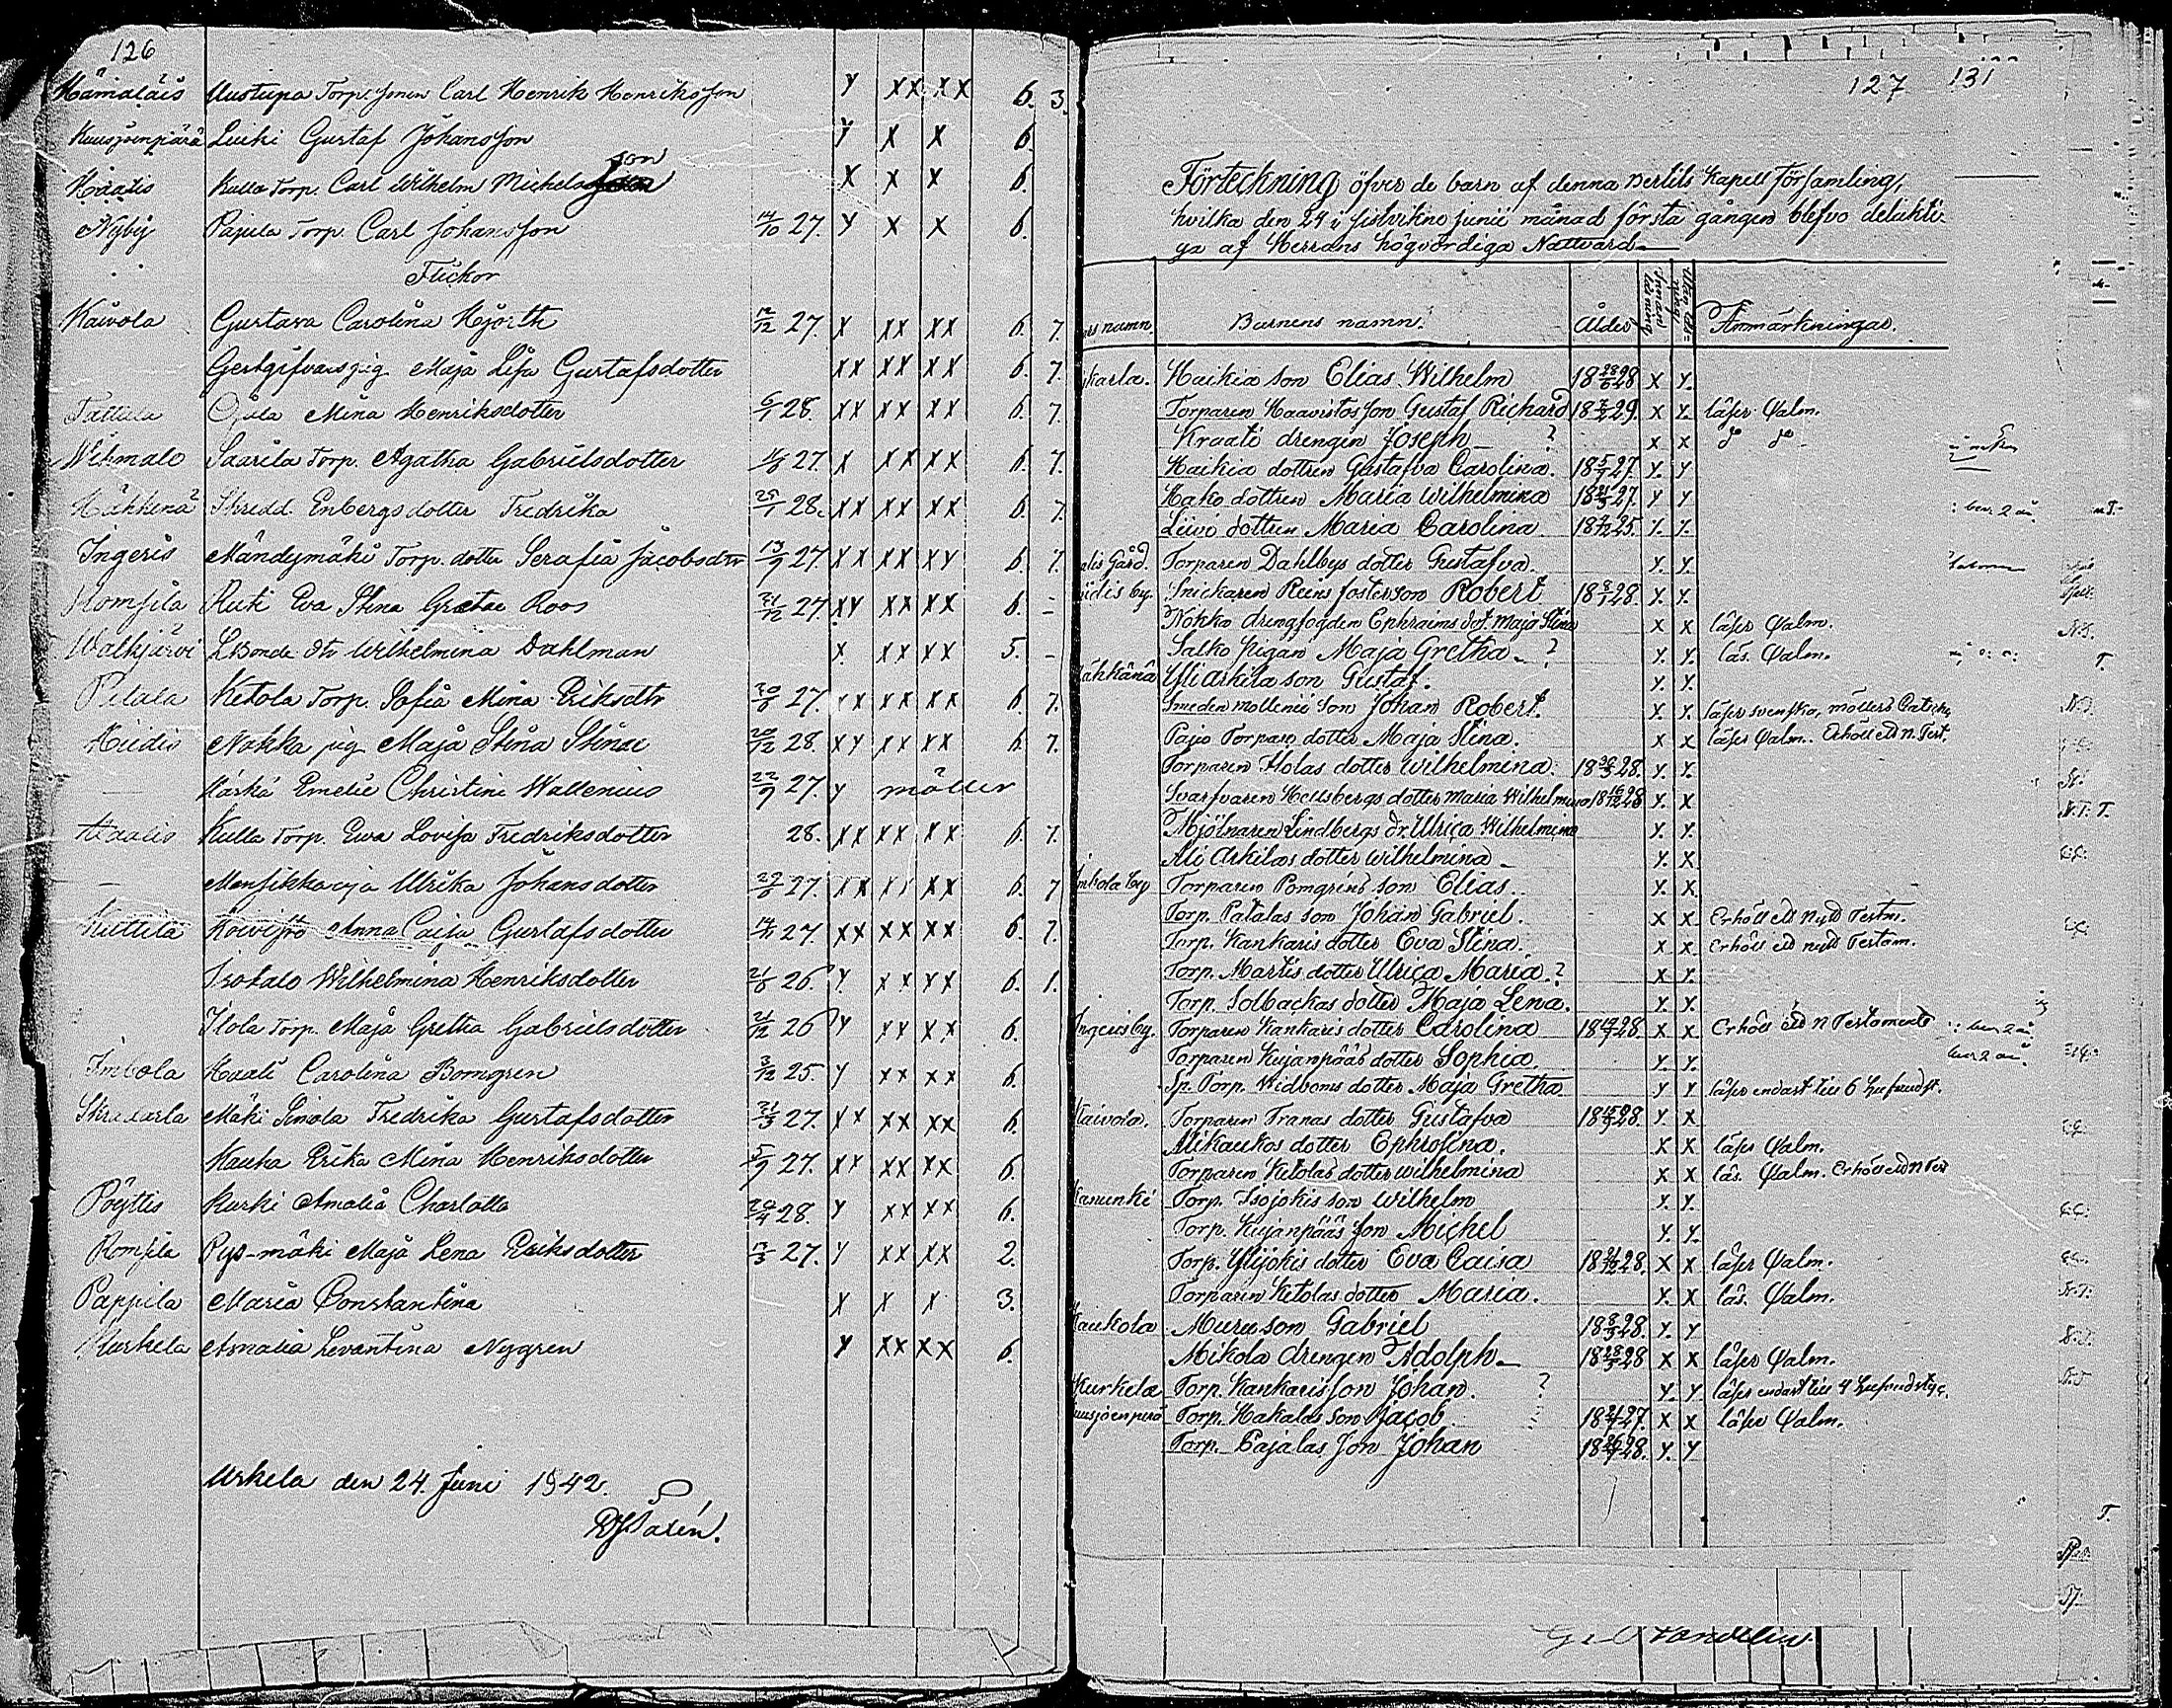 126
Hämäläis Uustupa Torp. sonen Carl Henrik Henriksson Y XX XX 6. 3.
Kuusjoenpärä Luiki Gustaf Johansson Y X X 6.
Haalis Kulla Torp. Carl Wilhelm Michelsson X X X 6.
Nyby Pajula Torp. Carl Johansson 14/10 27. Y X X 6.
Flickor
Kaivola Gustava Carolina Hjorth 12/12 27. X XX XX 6. 7.
Gestgifvars pig. Maja Lisa Gustafsdotter XX XX XX 6. 7.
Tattula Ojala Mina Henriksdotter 6/1 28. XX XX XX 6. 7.
Wihmalo Saarila Torp. Agatha Gabrielsdotter 27. X XX XX 6. 7.
Hähkänä Skredd. Enbergs dotter Fredrika 25/1 28. XX XX XX 6. 7.
Ingeris Mändymäki Torp. dotter Serafia Jacobsdtr 13/9 27. XX XX XY 6. 7.
Romsila Ruti Eva Stina Gretae Roos 21/12 27. XY XX XX 6. –
Walkjärvi LBonde dtr Wilhelmina Dahlman X. XX XX 5. –
Pitala Ketola Torp. Sofia Mina Eriksdtr 27. YX XX XX 6. 7.
Hiidis Nokka pig Maja Stina Stinae 20/12 28. XY XX XX 6. 7.
— Härkä Emelie Christine Wallenius 22/9 27. Y möller
Haalis Kulla Torp. Ewa Lovisa Fredriksdotter 28. XX XX XX 6. 7.
— Mensikkaoja Ulrika Johansdotter 27. XX XX XX 6. 7
Kuttila Koivisto Anna Caisa Gustafsdotter 27. XX XX XX 6. 7.
Isotalo Wilhelmina Henriksdotter 26. Y. XX XX 6. 1.
Ilola Torp. Maja Gretha Gabrielsdotter 21/12 26 Y XX XX 6.
Imbola Haali Carolina Bomgren 3/12 25. Y XX XX 6.
Skredarla Mäki Simola Fredrika Gustafsdotter 21/3 27. XX XX XX 6.
Kauha Erika Mina Henriksdotter 5/9 27. XX XX XX 6.
Pöyttis Kurki Amalia Charlotta 20/4 28. Y XX XX 6.
Romsila Pys-mäki Maja Lena Eriksdotter 27. Y XX XX 2.
Pappila Maria Constantina X X X 3.
Kurkela Amalia Levantina Nygren Y XX XX 6.
Urkela den 24. Juni 1842.
127 131
Förteckning öfver de barn af denna Bertils Kapell Församling,
hvilka den 24 i sistvikne Junii månad första gången blefvo delakti-
ga af Herrans högvördiga Nattvard.
namn. Barnens namn. Ålder Innan läsning Utan läs- Anmärkningar.
karla. Haikia son Elias Wilhelm 28 X Y.
Torparen Haavistos son Gustaf Richard 29. X Y. läser Psalm.
Kraati drengen Joseph — ? X X do do
Haikia dottren Gustafva Carolina. 27. Y. Y
Hako dottren Maria Wilhelmina 27. Y Y
Liivo dottren Maria Carolina. 25. Y. Y.
Gård. Torparen Dahlbys dotter Gustafva. Y. Y.
by. Snickaren Reens fosterson Robert 28. Y. Y.
Nokka drengfogden Ephraims dot. Maja Stina X X läser Psalm.
Salko pigan Maja Gretha. ? Y. Y. läs. Psalm.
Yliarkila son Gustaf. Y. Y.
Smeden Mollenii Son Johan Robert. Y. Y. läser svenska, möllers Catech.
Pajo Torpare dotter Maja Stina. X X läser Psalm. Erhöll ett n. Test.
Torparen Ilolas dotter Wilhelmina. 28. Y. Y.
Svarfvaren Hellsbergs dotter Maria Wilhelmina 28 Y. X
Mjölnaren Lindbergs dr. Ulrica Wilhelmina Y. Y.
Ali Arkilas dotter Wilhelmina Y. X
Imbola by Torparen Pomgrens son Elias. Y. X.
Torp. Patalas son Johan Gabriel. X X Erhöll ett Nytt Testm.
Torp. Kankaris dotter Eva Stina. X X Erhöll ett nytt Testam.
Torp. Martis dotter Ulrica Maria. ? X Y.
Torp. Solbackas dotter Maja Lena. Y. Y.
Ingeris by. Torparen Kankaris dotter Carolina 28. X X Erhöll ett N Testamente
Torparen Kujanpääs dotter Sophia. Y. Y.
Sp. Torp. Widboms dotter Maja Gretha. Y Y läser endast till 6 hufvudst.
Kaivola. Torparen Tranas dotter Gustafva 28. Y. X
Alikaukos dotter Ephrosina. X X läser Psalm.
Torparen Ketolas dotter Wilhelmina X X läs. Psalm. Erhöll ett N Test
Kanunki Torp. Isojokis son Wilhelm Y. Y.
Torp. Kujanpääs son Michel Y. Y.
Torp. Ylijokis dotter Eva Caisa 28. X X läser Psalm.
Torparen Ketolas dotter Maria. Y. X läs. Psalm.
Kaukola Muru son Gabriel 28. Y. Y
Mikola drengen Adolph 28 X X läser Psalm.
Kurkela Torp. Kankaris son Johan. ? Y. Y läser endast till 4 hufvudstyc.
Torp. Hakalas son Jacob 27. X X läser Psalm.
Torp. Pajalas son Johan 28. Y. Y